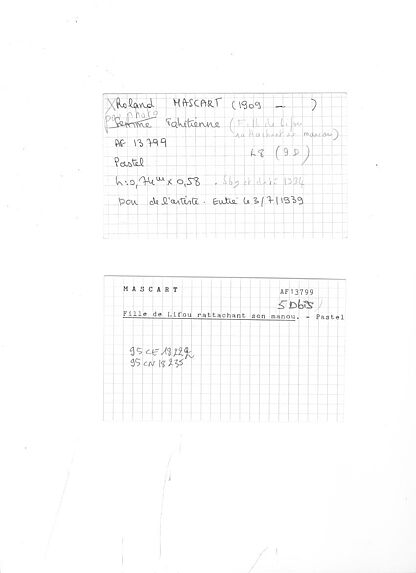 X Roland MASCART (1909 – )
pas photo
Femme Tahitienne (Fille de Lifou
rattachant son manou)
AF 13799
L8 (9D)
Pastel
h=0,74m x 0,58 . Sbg et daté 1934
Don de l'artiste. Entré le 3/7/1939
MASCART
AF13799
5 Dbis
Fille de Lifou rattachant son manou. - Pastel
95 CE 18229
95 CN 18235